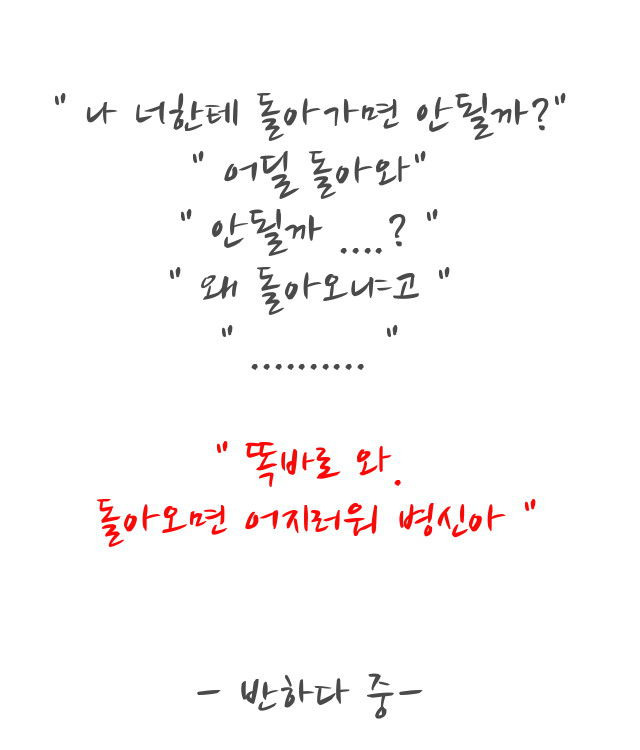 " 나 너한테 돌아가면 안될까?"
" 어딜 돌아와"
" 안될까 ....? "
" 왜 돌아오냐고 "
" .......... "
" 똑바로 와.
돌아오면 어지러워 병신아 "
- 반하다 중-